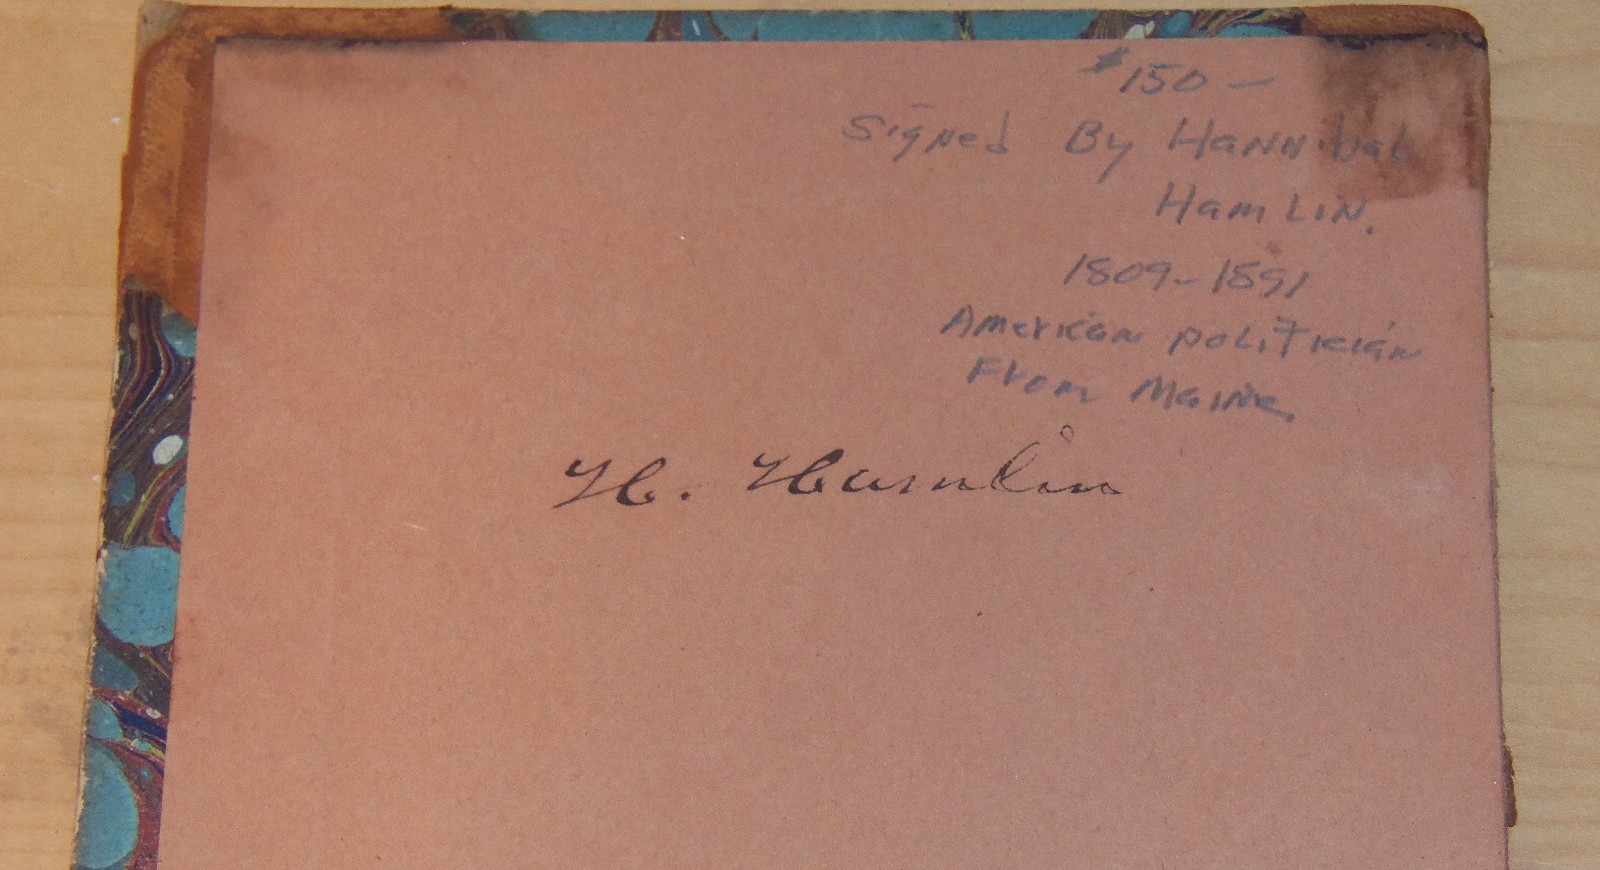 $150 –
Signed By Hannibal
Hamlin.
1809-1891
American politician
From Maine
H. Hamlin